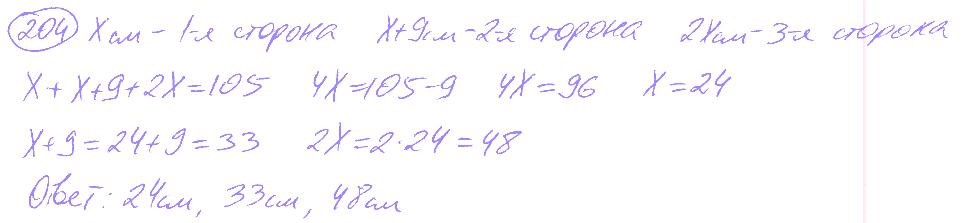 204 Xсм - 1-я сторона X+9см - 2-я сторона 2Xсм - 3-я сторона
X + X + 9 + 2X = 105 4X = 105 - 9 4X = 96 X = 24
X + 9 = 24 + 9 = 33 2X = 2 · 24 = 48
Ответ: 24см, 33см, 48см